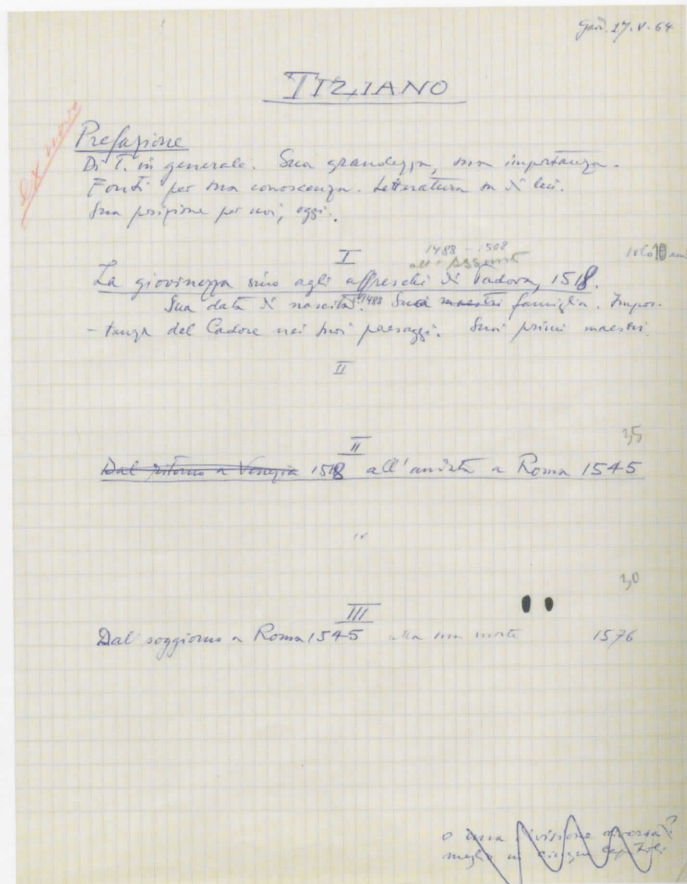 27.V.64
TIZIANO
ex novo
Prefazione
Di T. in generale. Sua grandezza, sua importanza.
Fonti per sua conoscenza. Letteratura su di lui.
Sua posizione per noi, oggi.
I
1488 - 1508
all'Assunta
solo 10 anni
La giovinezza sino agli affreschi di Padova, 1518.
Sua data di nascita: 1488 Sua maestri famiglia. Impor-
-tanza del Cadore nei suoi paesaggi. Suoi primi maestri.
II
35
II
Dal ritorno a Venezia 1518 all'andata a Roma 1545
IV
30
III
Dal soggiorno a Roma 1545 alla sua morte 1576
o una divisione diversa?
meglio in cinque capitoli